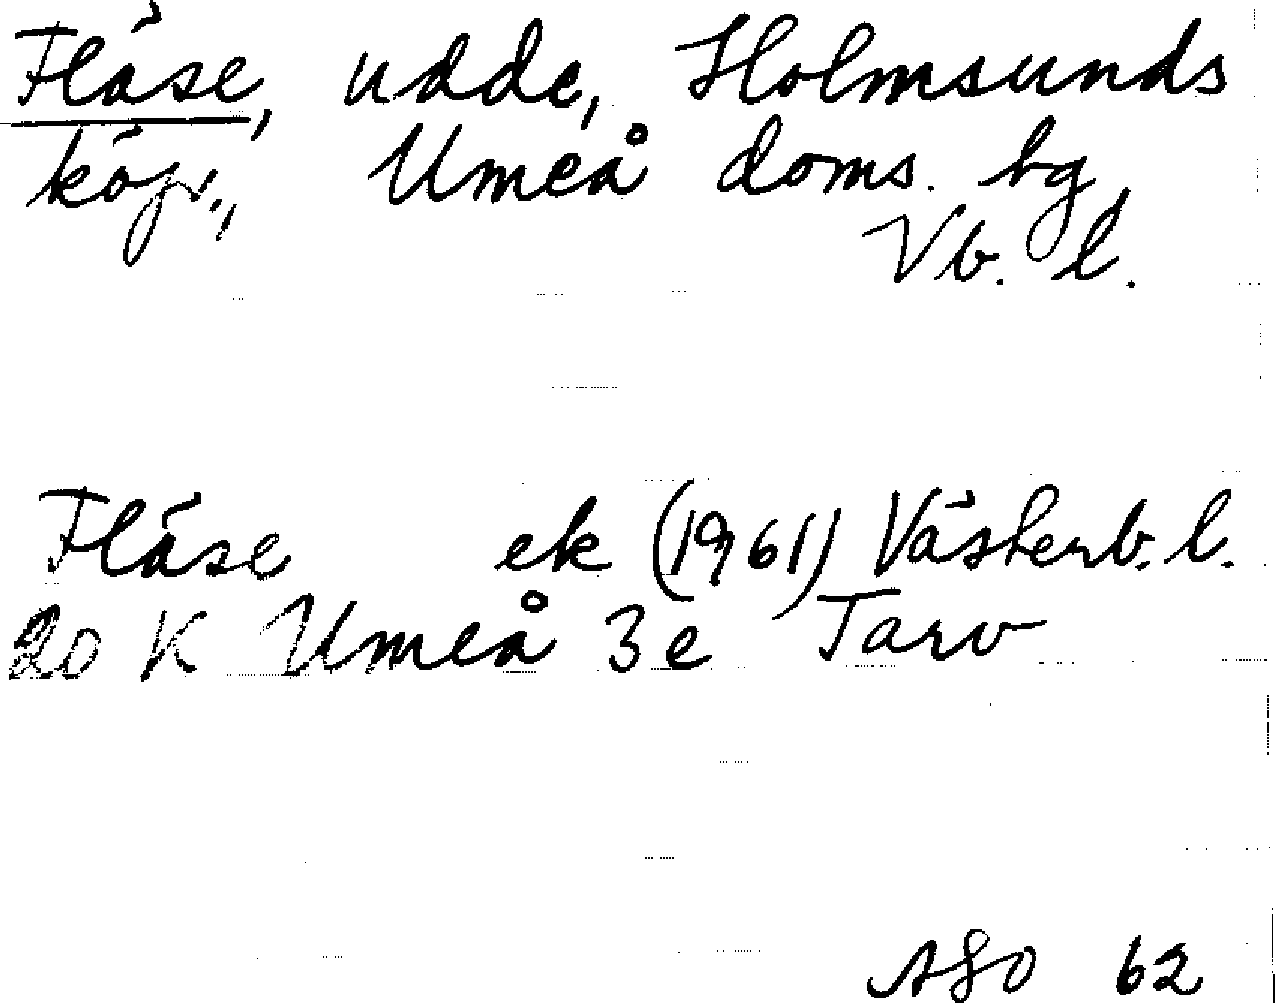 Fläse, udde, Holmsunds
köp., Umeå doms. bg,
Vb. l.
Fläse ek (1961) Västerb. l.
20 K Umeå 3e Tarv
ASO 62